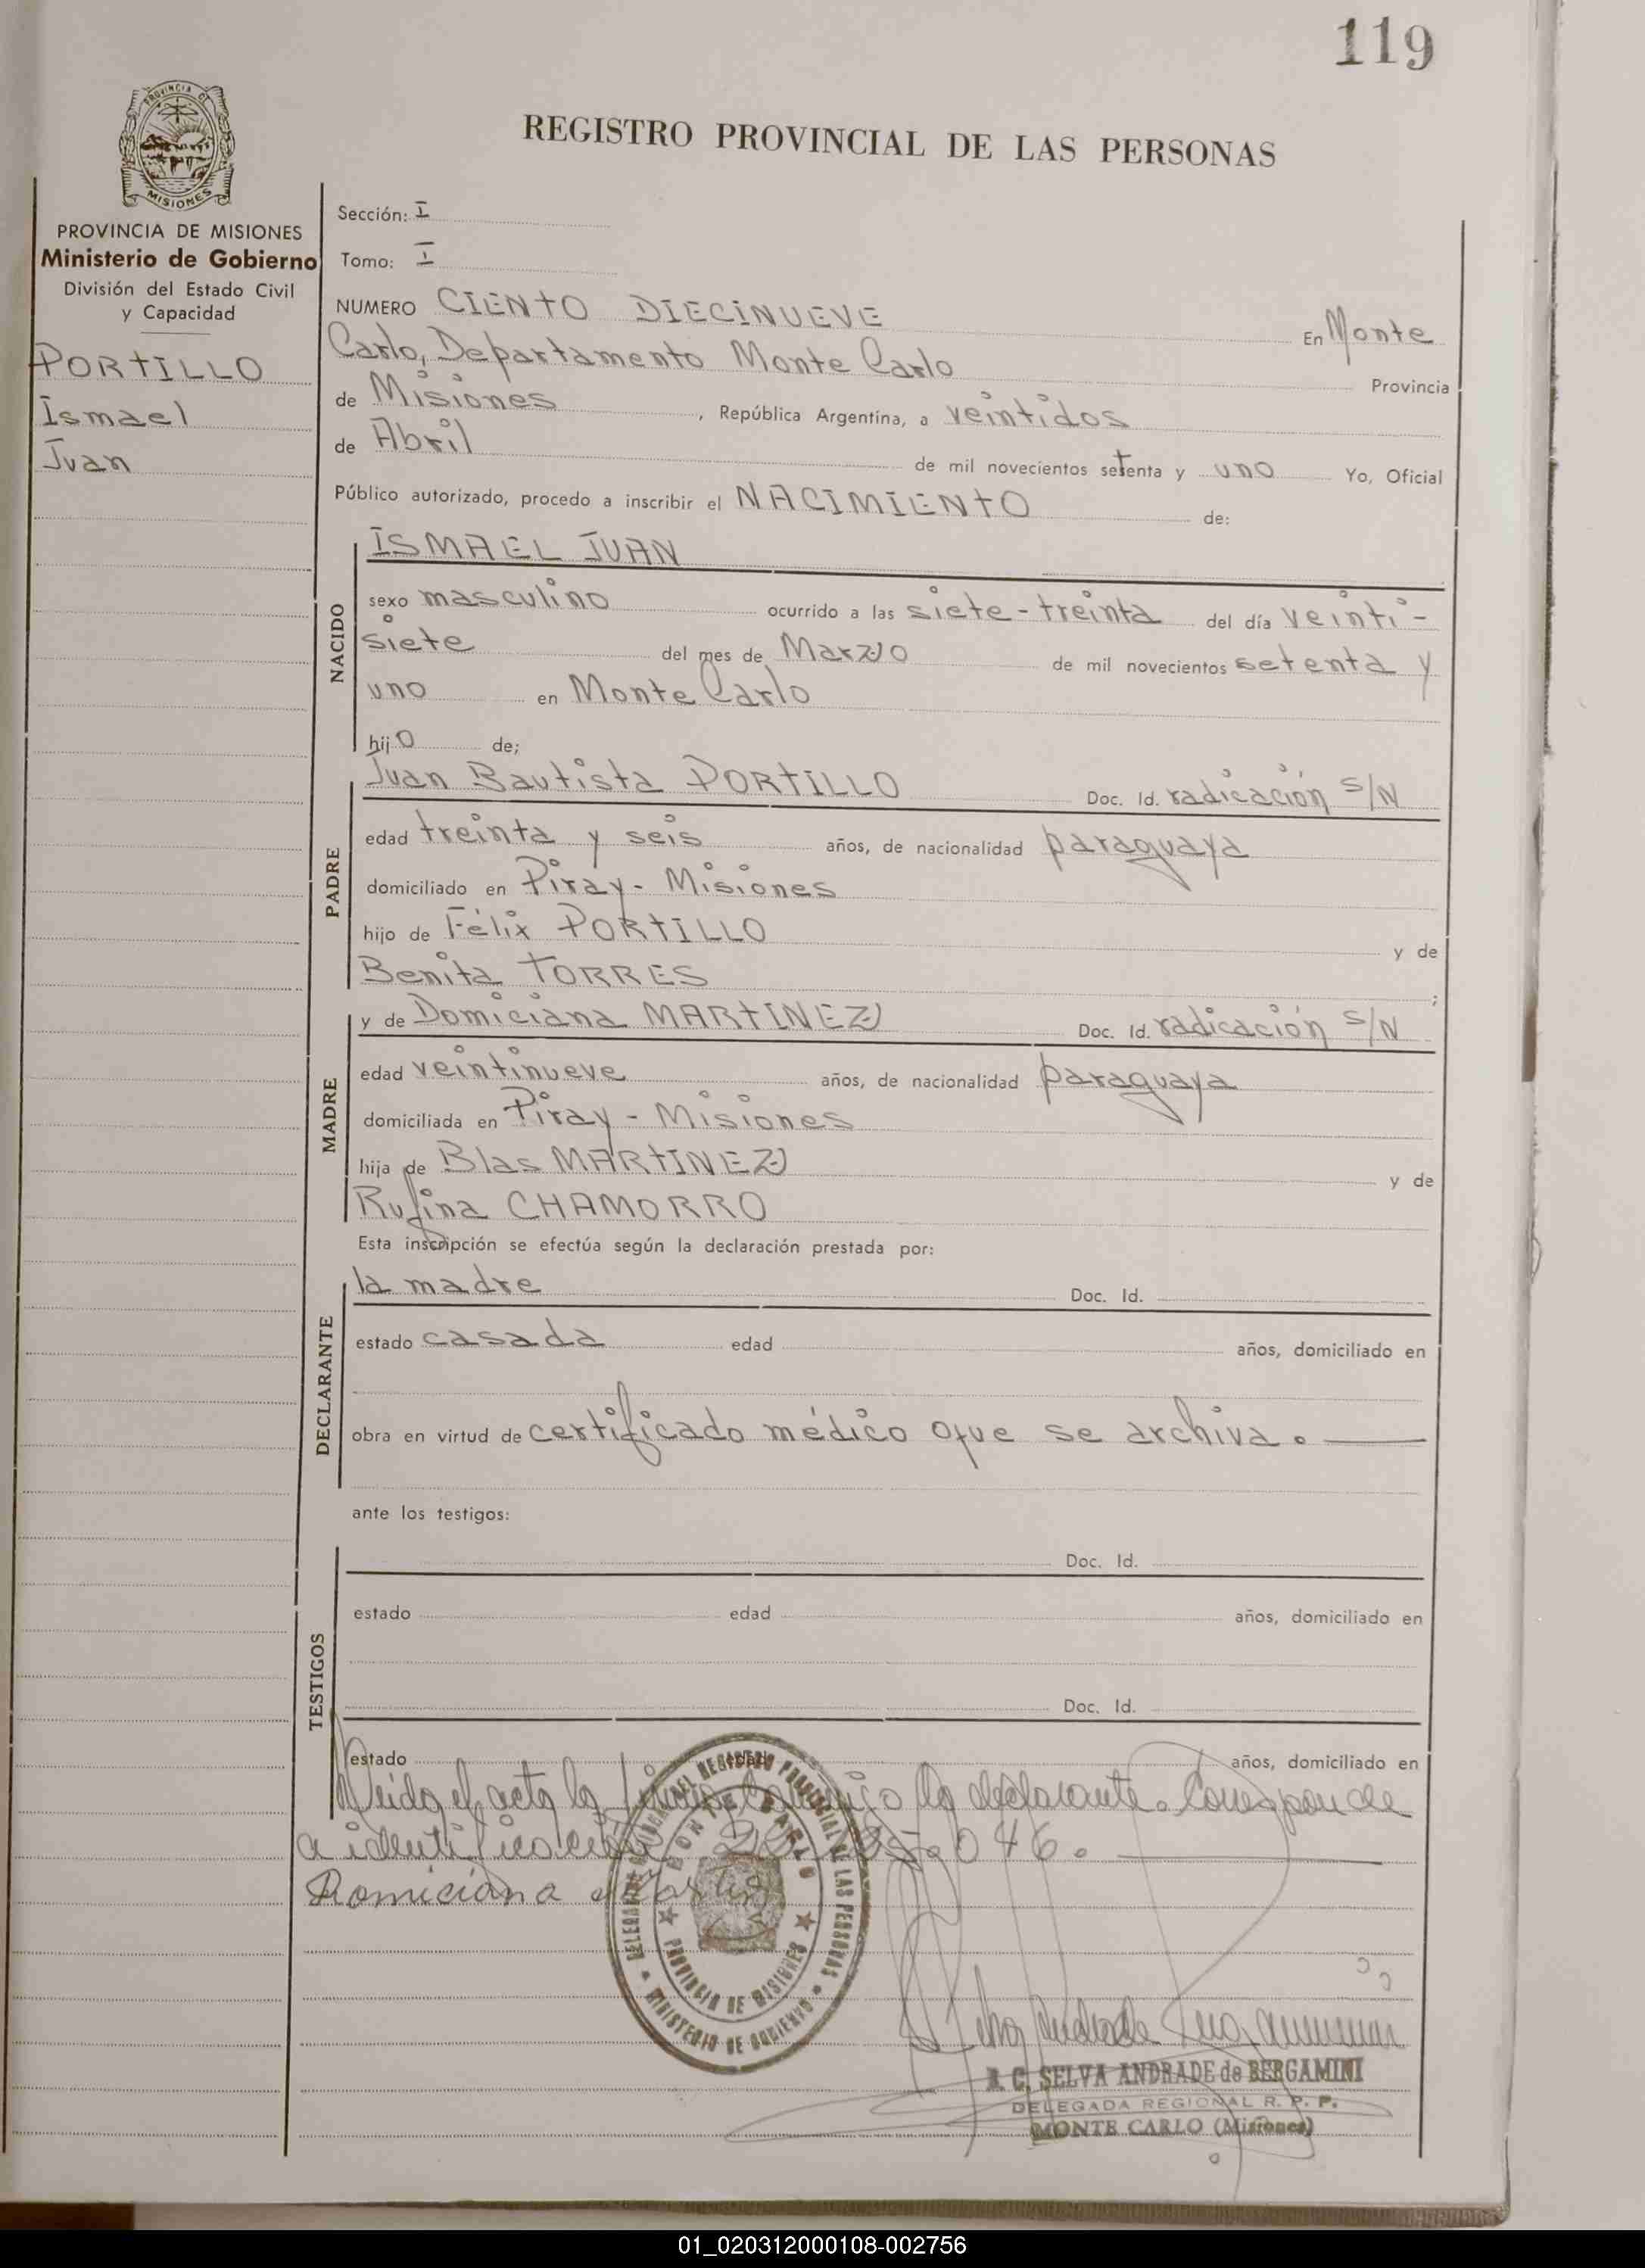 119
PROVINCIA DE
MISIONES
REGISTRO PROVINCIAL DE LAS PERSONAS
PROVINCIA DE MISIONES
Ministerio de Gobierno
División del Estado Civil
y Capacidad
PORTILLO
Ismael
Juan
Sección: I
Tomo: I
NUMERO CIENTO DIECINUEVE En Monte
Carlo, Departamento Monte Carlo Provincia
de Misiones, República Argentina, a veintidos
de Abril de mil novecientos setenta y uno Yo, Oficial
Público autorizado, procedo a inscribir el NACIMIENTO de:
NACIDO
ISMAEL JUAN
sexo masculino ocurrido a las siete-treinta del día veinti-
siete del mes de Marzo de mil novecientos setenta y
uno en Monte Carlo
hijo de;
PADRE
Juan Bautista PORTILLO Doc. Id. radicación S/N
edad treinta y seis años, de nacionalidad paraguaya
domiciliado en Piray - Misiones
hijo de Félix PORTILLO y de
Benita TORRES ;
MADRE
y de Domiciana MARTINEZ Doc. Id. radicación S/N
edad veintinueve años, de nacionalidad paraguaya
domiciliada en Piray - Misiones
hija de Blas MARTINEZ y de
Rufina CHAMORRO
Esta inscripción se efectúa según la declaración prestada por:
DECLARANTE
la madre Doc. Id.
estado casada edad años, domiciliado en
obra en virtud de certificado médico que se archiva.
ante los testigos:
TESTIGOS
Doc. Id.
estado edad años, domiciliado en
Doc. Id.
estado edad años, domiciliado en
Leida el acta la firma conmigo la declarante. Corresponde
a identificación 046.
Domiciana
DELEGADA REGISTRO PROVINCIAL DE LAS PERSONAS
MINISTERIO DE GOBIERNO
MONTE CARLO
PROVINCIA DE MISIONES
C. SELVA ANDRADE de BERGAMINI
DELEGADA REGIONAL R. P. P.
MONTE CARLO (Misiones)
01_020312000108-002756